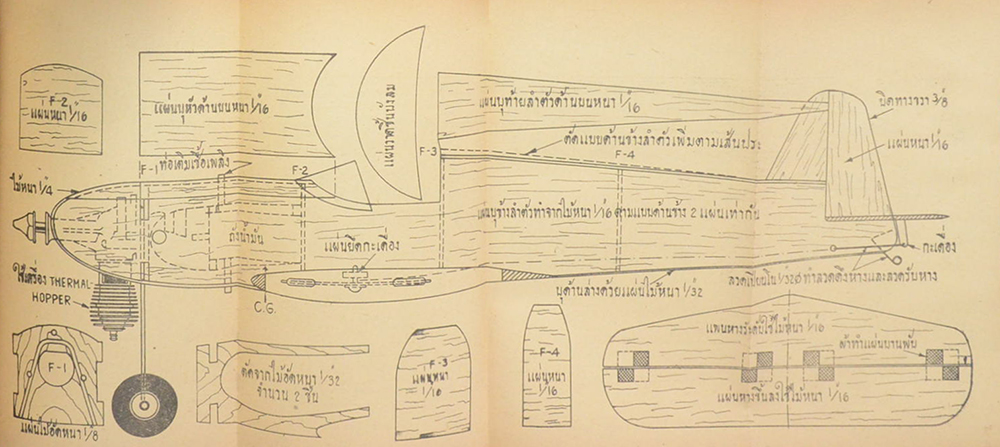 F-2
แผ่นหนา 1/16
แผ่นบุหัวด้านบนหนา 1/16
แผ่นวาดชี้นบังลม
แผ่นบุท้ายลำตัวด้านบนหนา 1/16
ปิดทางขวา 3/8
แผ่นหนา 1/16
F-3
ตัดแบบด้านข้างลำตัวเพิ่มตามเส้นประ
F-4
F-1
ท่อเติมเชื้อเพลิง
F-2
ไม้หนา 1/4
แผ่นบุข้างลำตัวทำจากไม้หนา 1/16 ตามแบบด้านข้าง 2 แผ่นเท่ากัน
ถังน้ำมัน
แผ่นยึดกะเดื่อง
กะเดื่อง
ใช้เครื่อง THERMAL-
HOPPER
C.G.
บุด้านล่างด้วยแผ่นไม้หนา 1/32
ลวดเปียนโน 1/32 ทำลวดดึงหางและลวดรับหาง
F-1
แผ่นไม้อัดหนา 1/8
ตัดจากไม้อัดหนา 1/32
จำนวน 2 ชิ้น
F-3
แผ่นหนา
1/16
F-4
แผ่นหนา
1/16
แพนหางระดับใช้ไม้หนา 1/16
ผ้าทำแผ่นบานพับ
แผ่นหางขึ้นลงใช้ไม้หนา 1/16